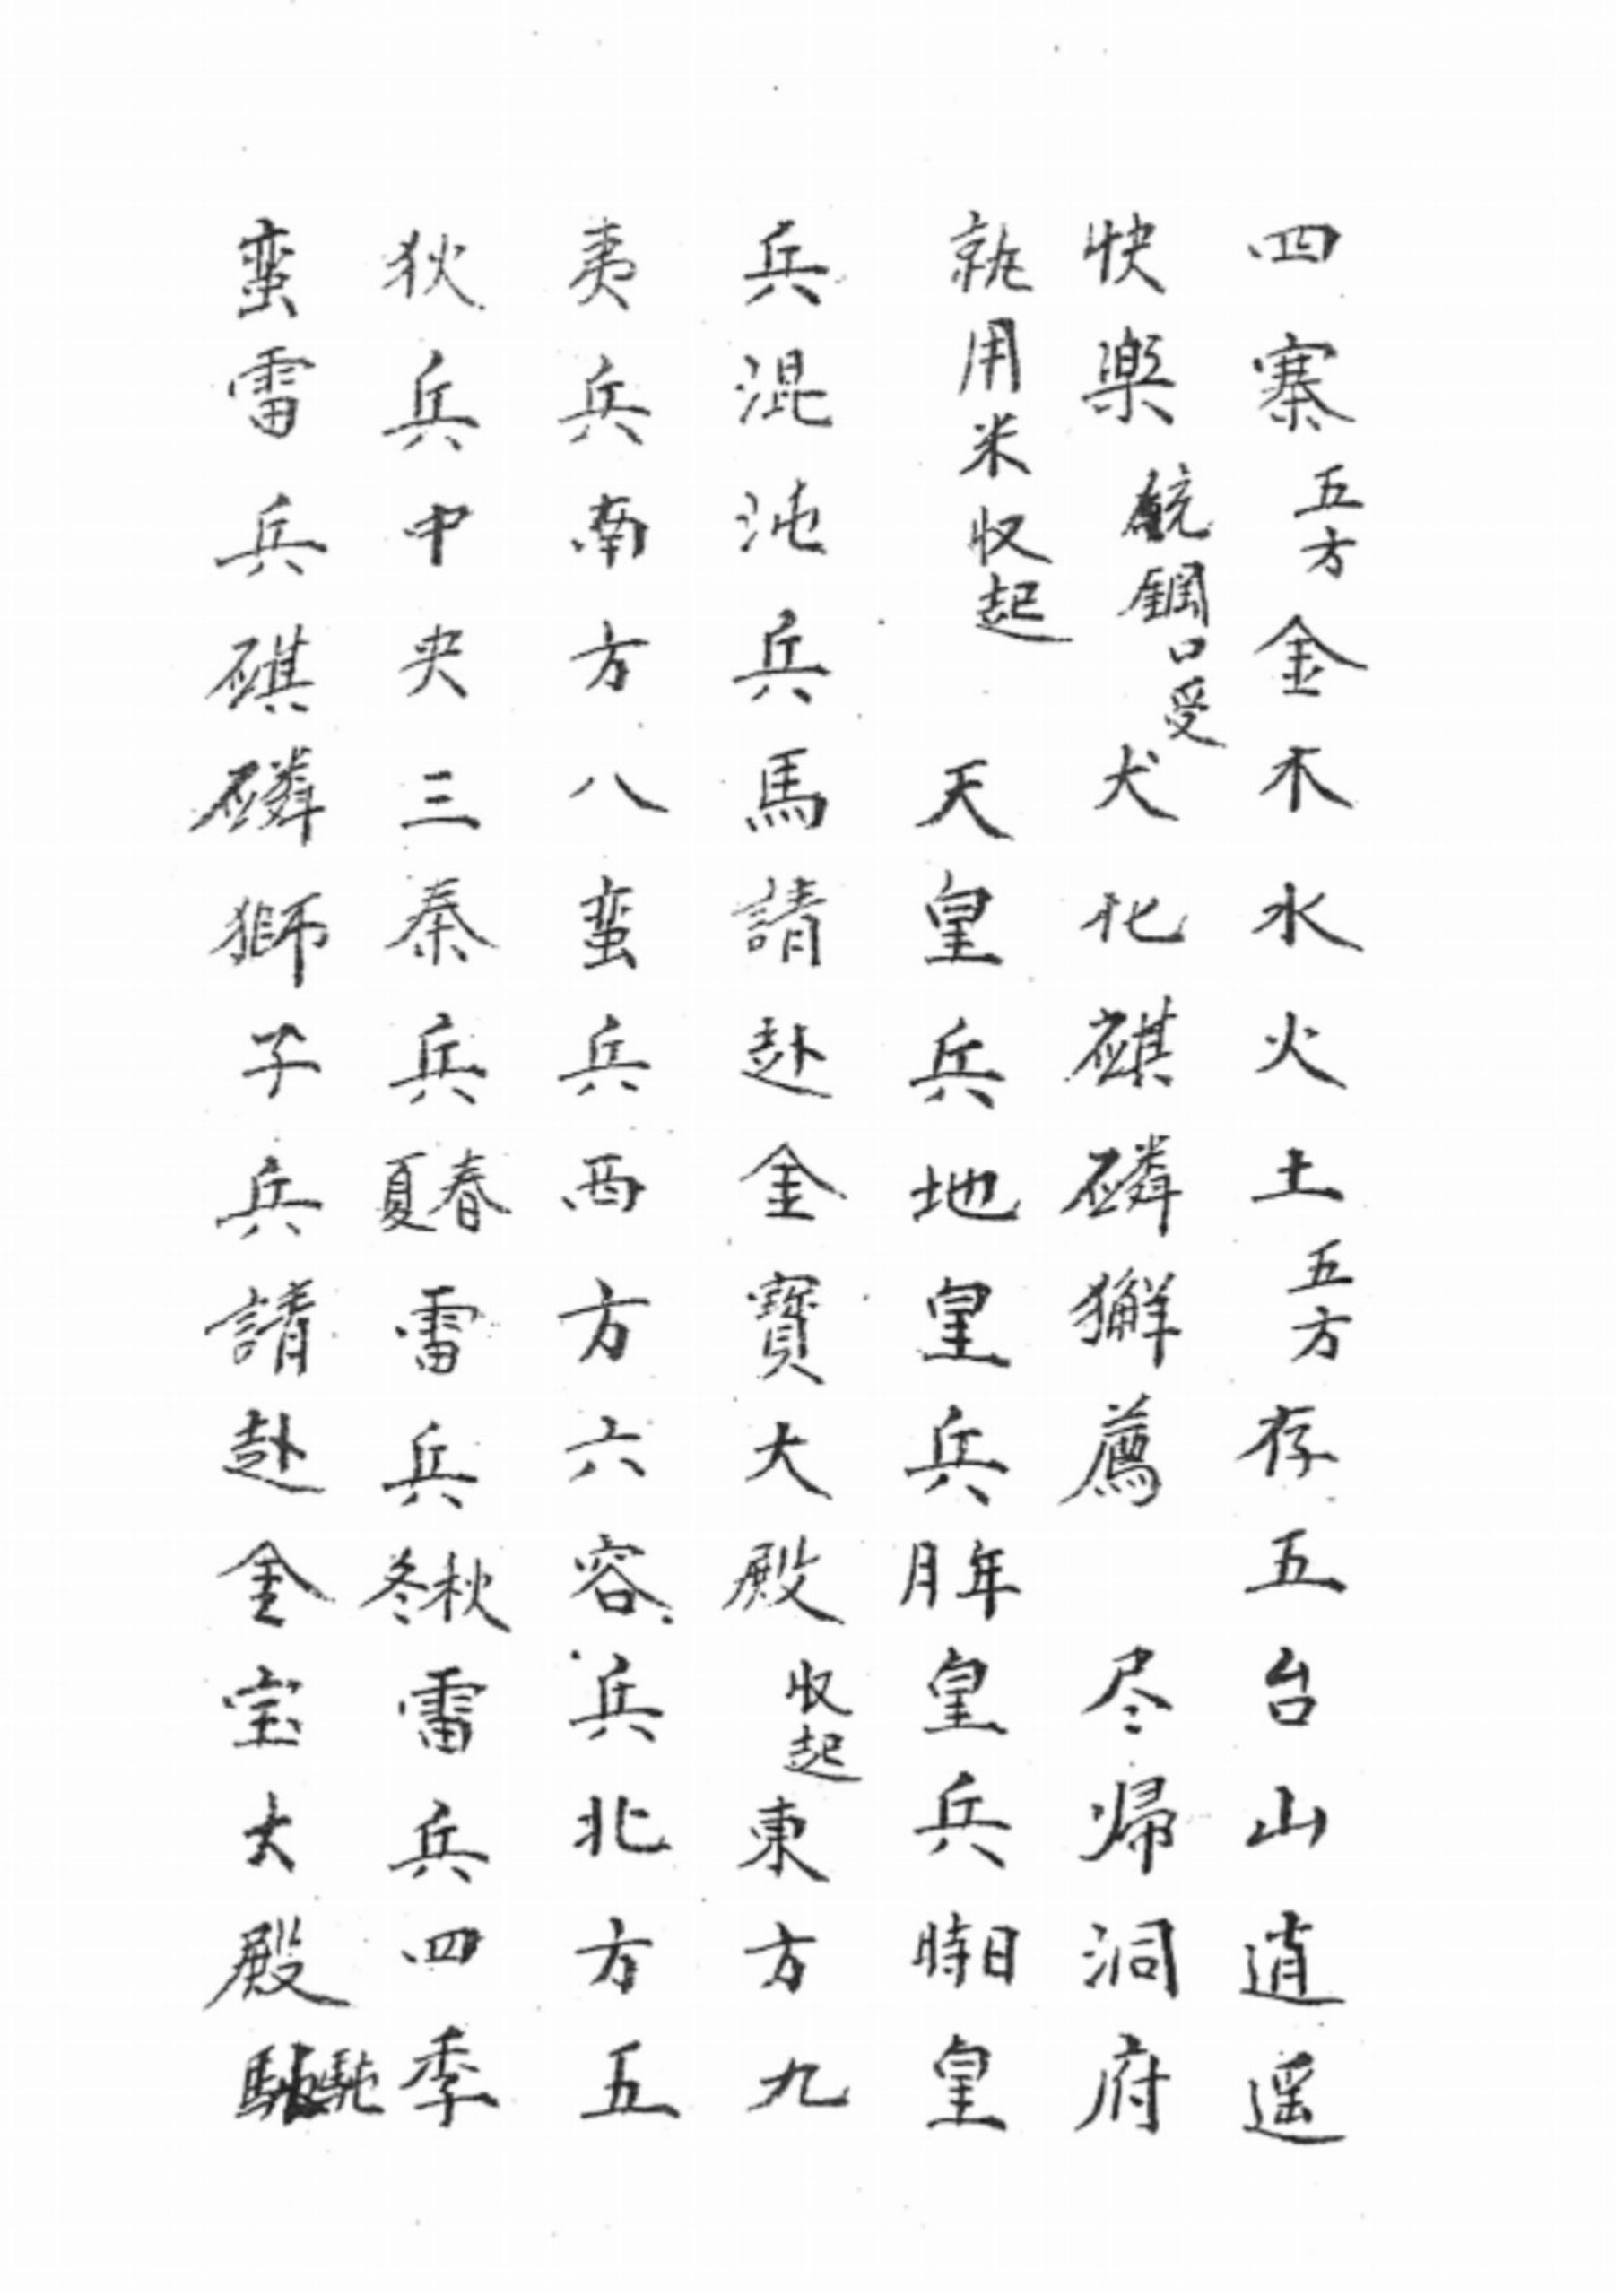 四寨五方金木水火土五方存五台山逍遥
快楽口受犬化磷獬薦尽帰洞府
就用米収起天皇兵地皇兵年月皇兵日時皇
兵混沌兵馬請赴金寶大殿収起東方九
夷兵南方八蛮兵西方六容兵北方五
狄兵中央三秦兵春夏雷兵秋冬雷兵四季
蛮雷兵磷獅子兵請赴金宝大殿